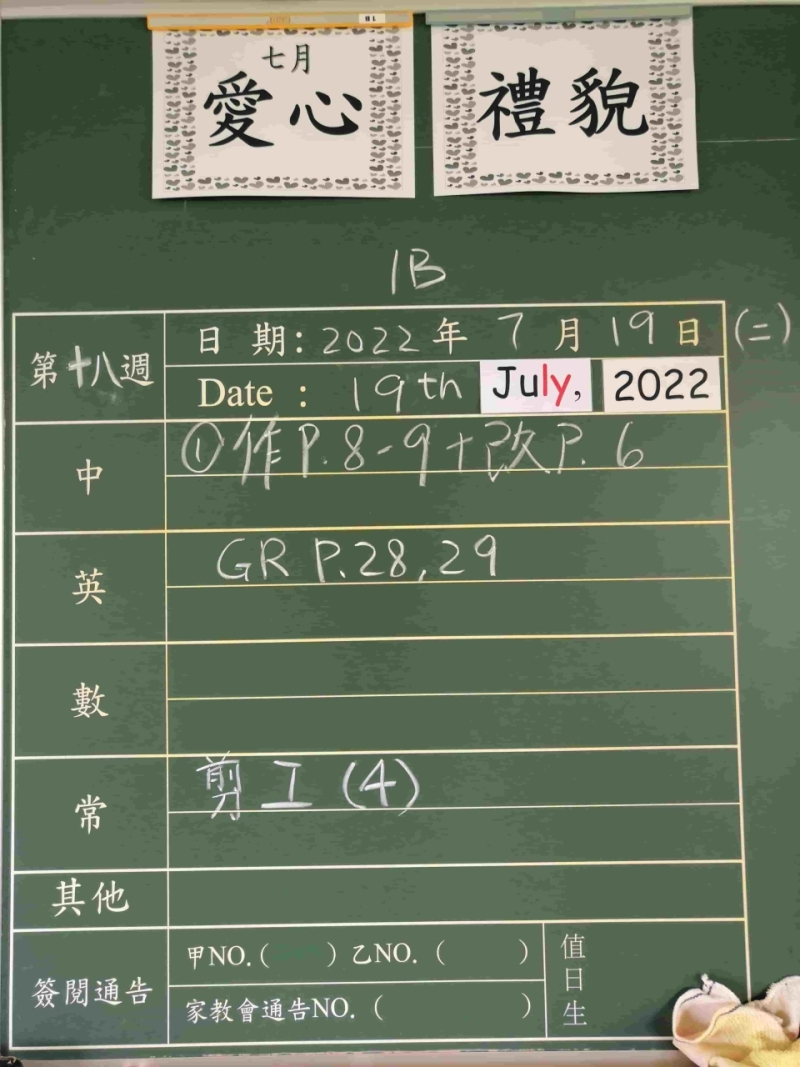 七月
愛心
禮貌
1B
第十八週
日 期：2022 年 7 月 19 日 (二)
Date : 19th July, 2022
中
①作P.8-9+改P.6
英
GR P.28,29
數
常
剪工(4)
其他
簽閱通告
甲NO.( ) 乙NO.( )
家教會通告NO.( )
值日生